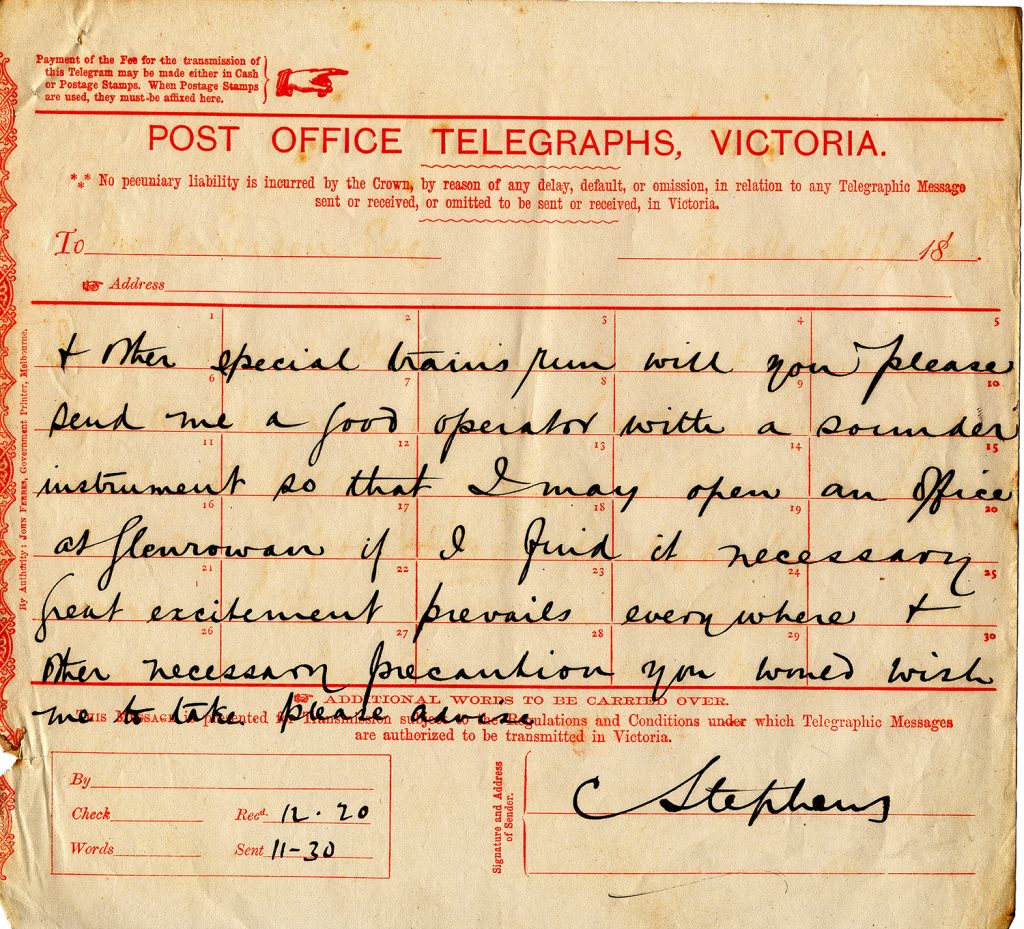 Payment of the Fee for the transmission of
this Telegram may be made either in Cash
or Postage Stamps. When Postage Stamps
are used, they must be affixed here.
POST OFFICE TELEGRAPHS, VICTORIA.
*** No pecuniary liability is incurred by the Crown, by reason of any delay, default, or omission, in relation to any Telegraphic Message
sent or received, or omitted to be sent or received, in Victoria.
To 18
Address
1 2 3 4 5
& other special trains run will you please
6 7 8 9 10
send me a good operator with a sounder
11 12 13 14 15
instrument so that I may open an office
16 17 18 19 20
at Glenrowan if I find it necessary
21 22 23 24 25
Great excitement prevails everywhere &
26 27 28 29 30
other necessary precaution you would wish
ADDITIONAL WORDS TO BE CARRIED OVER.
me to take please advise
THIS MESSAGE is presented for Transmission subject to the Regulations and Conditions under which Telegraphic Messages
are authorized to be transmitted in Victoria.
By
Check Recd. 12.20
Words Sent 11-30
Signature and Address
of Sender.
C Stephens
By Authority: JOHN FERRES, Government Printer, Melbourne.